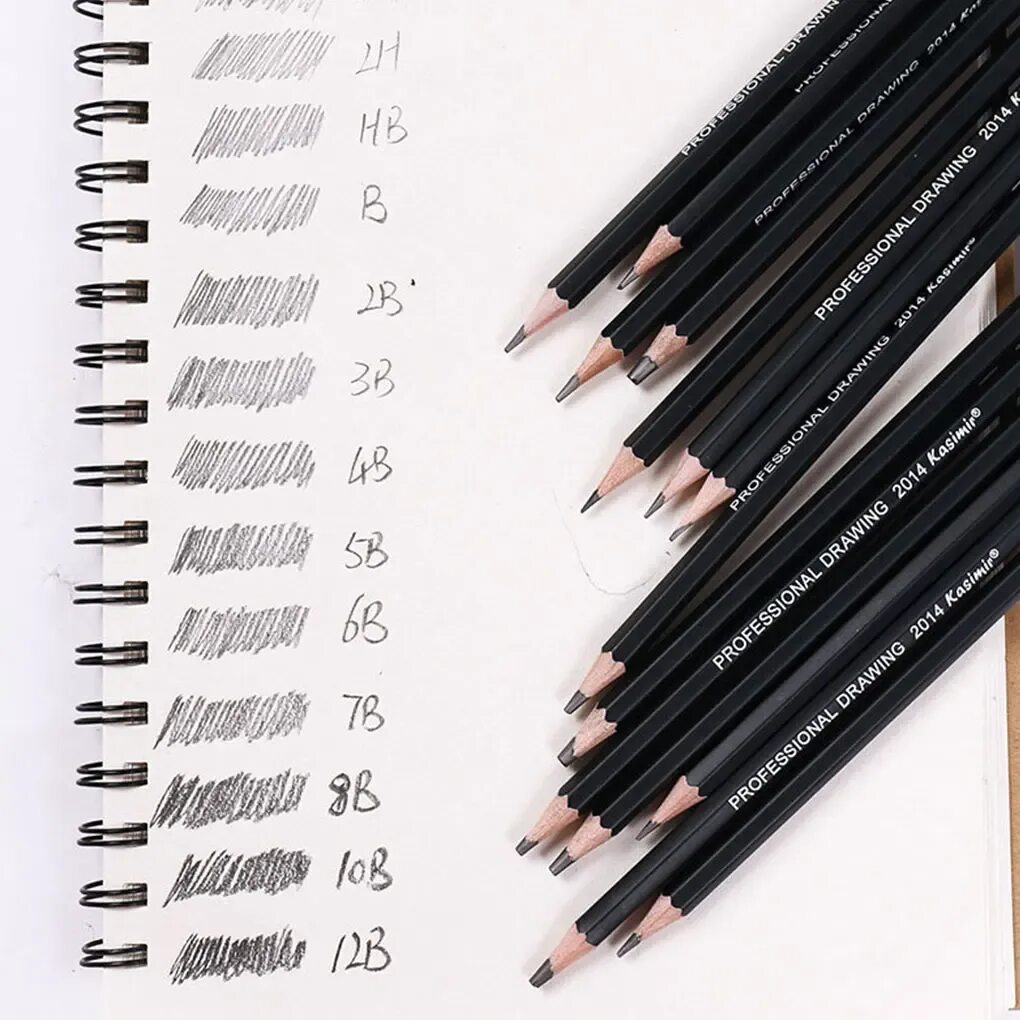 2H
HB
B
2B
3B
4B
5B
6B
7B
8B
10B
12B
PROFESSIONAL
PROFESSIONAL
PROFESSIONAL DRAWING 2014
PROFESSIONAL DRAWING 2014
PROFESSIONAL DRAWING 2014 Kasimir®
PROFESSIONAL DRAWING 2014 Kasimir®
PROFESSIONAL DRAWING 2014 Kasimir®